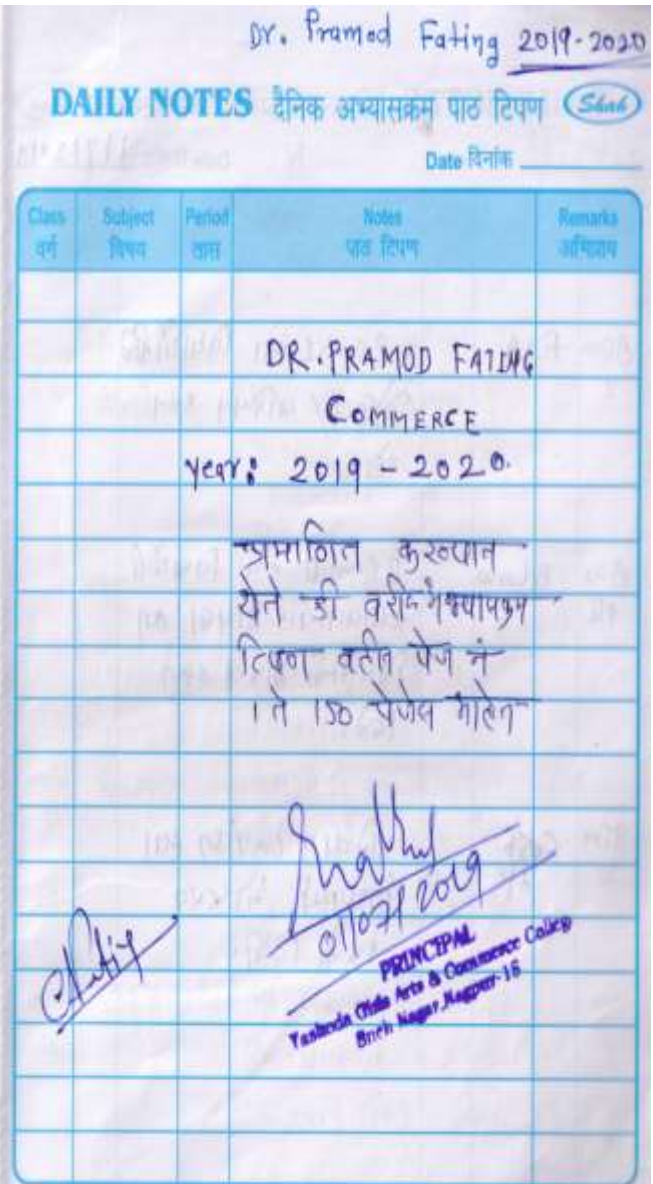 Dr. Pramod Fating 2019-2020
DAILY NOTES दैनिक अभ्यासक्रम पाठ टिपण Shah
Date दिनांक
Class Subject Period Notes Remarks
वर्ग विषय तास पाठ टिपण अभिप्राय
DR. PRAMOD FATING
COMMERCE
Year: 2019 - 2020.
प्रमाणित करण्यात
येते की
टिपण वहीत पेज नं
1 ते 150 पेजेस आहेत
01/07/2019
PRINCIPAL
Yashoda Girls Arts & Commerce College
Sneh Nagar, Nagpur-15